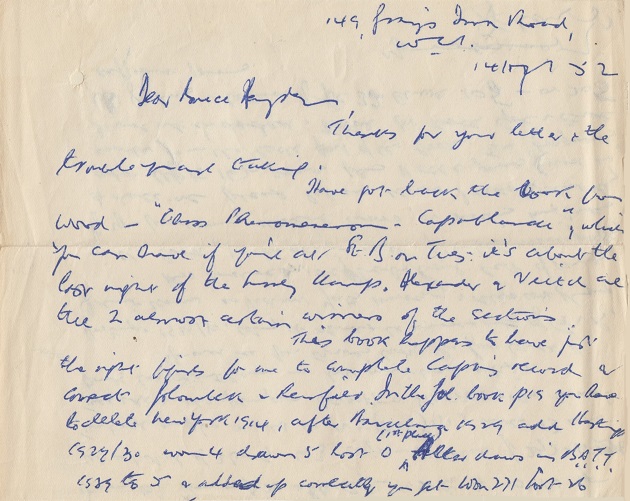 149, Gray's Inn Road,
W.C.1.
14 52
Dear
Thanks for your letter & the
trouble you are taking.
Have got back the book from
Wood — "Chess Phenomenon - Capablanca", which
you can have if you're at on Tues. it's about the
last night of the Champs. Alexander & Veitch are
the 2 almost certain winners of the sections.
This book happens to have just
the right figures for me to complete Capa's record &
correct Golombek & Reinfeld. In the Gol. book p19 you have
to delete New York 1914, after Barcelona 1929 add Hastings
1929/30 won 4 drawn 5 lost 0 (1st place) draws in
1939 to 5 & added up correctly you get won 271 lost 26